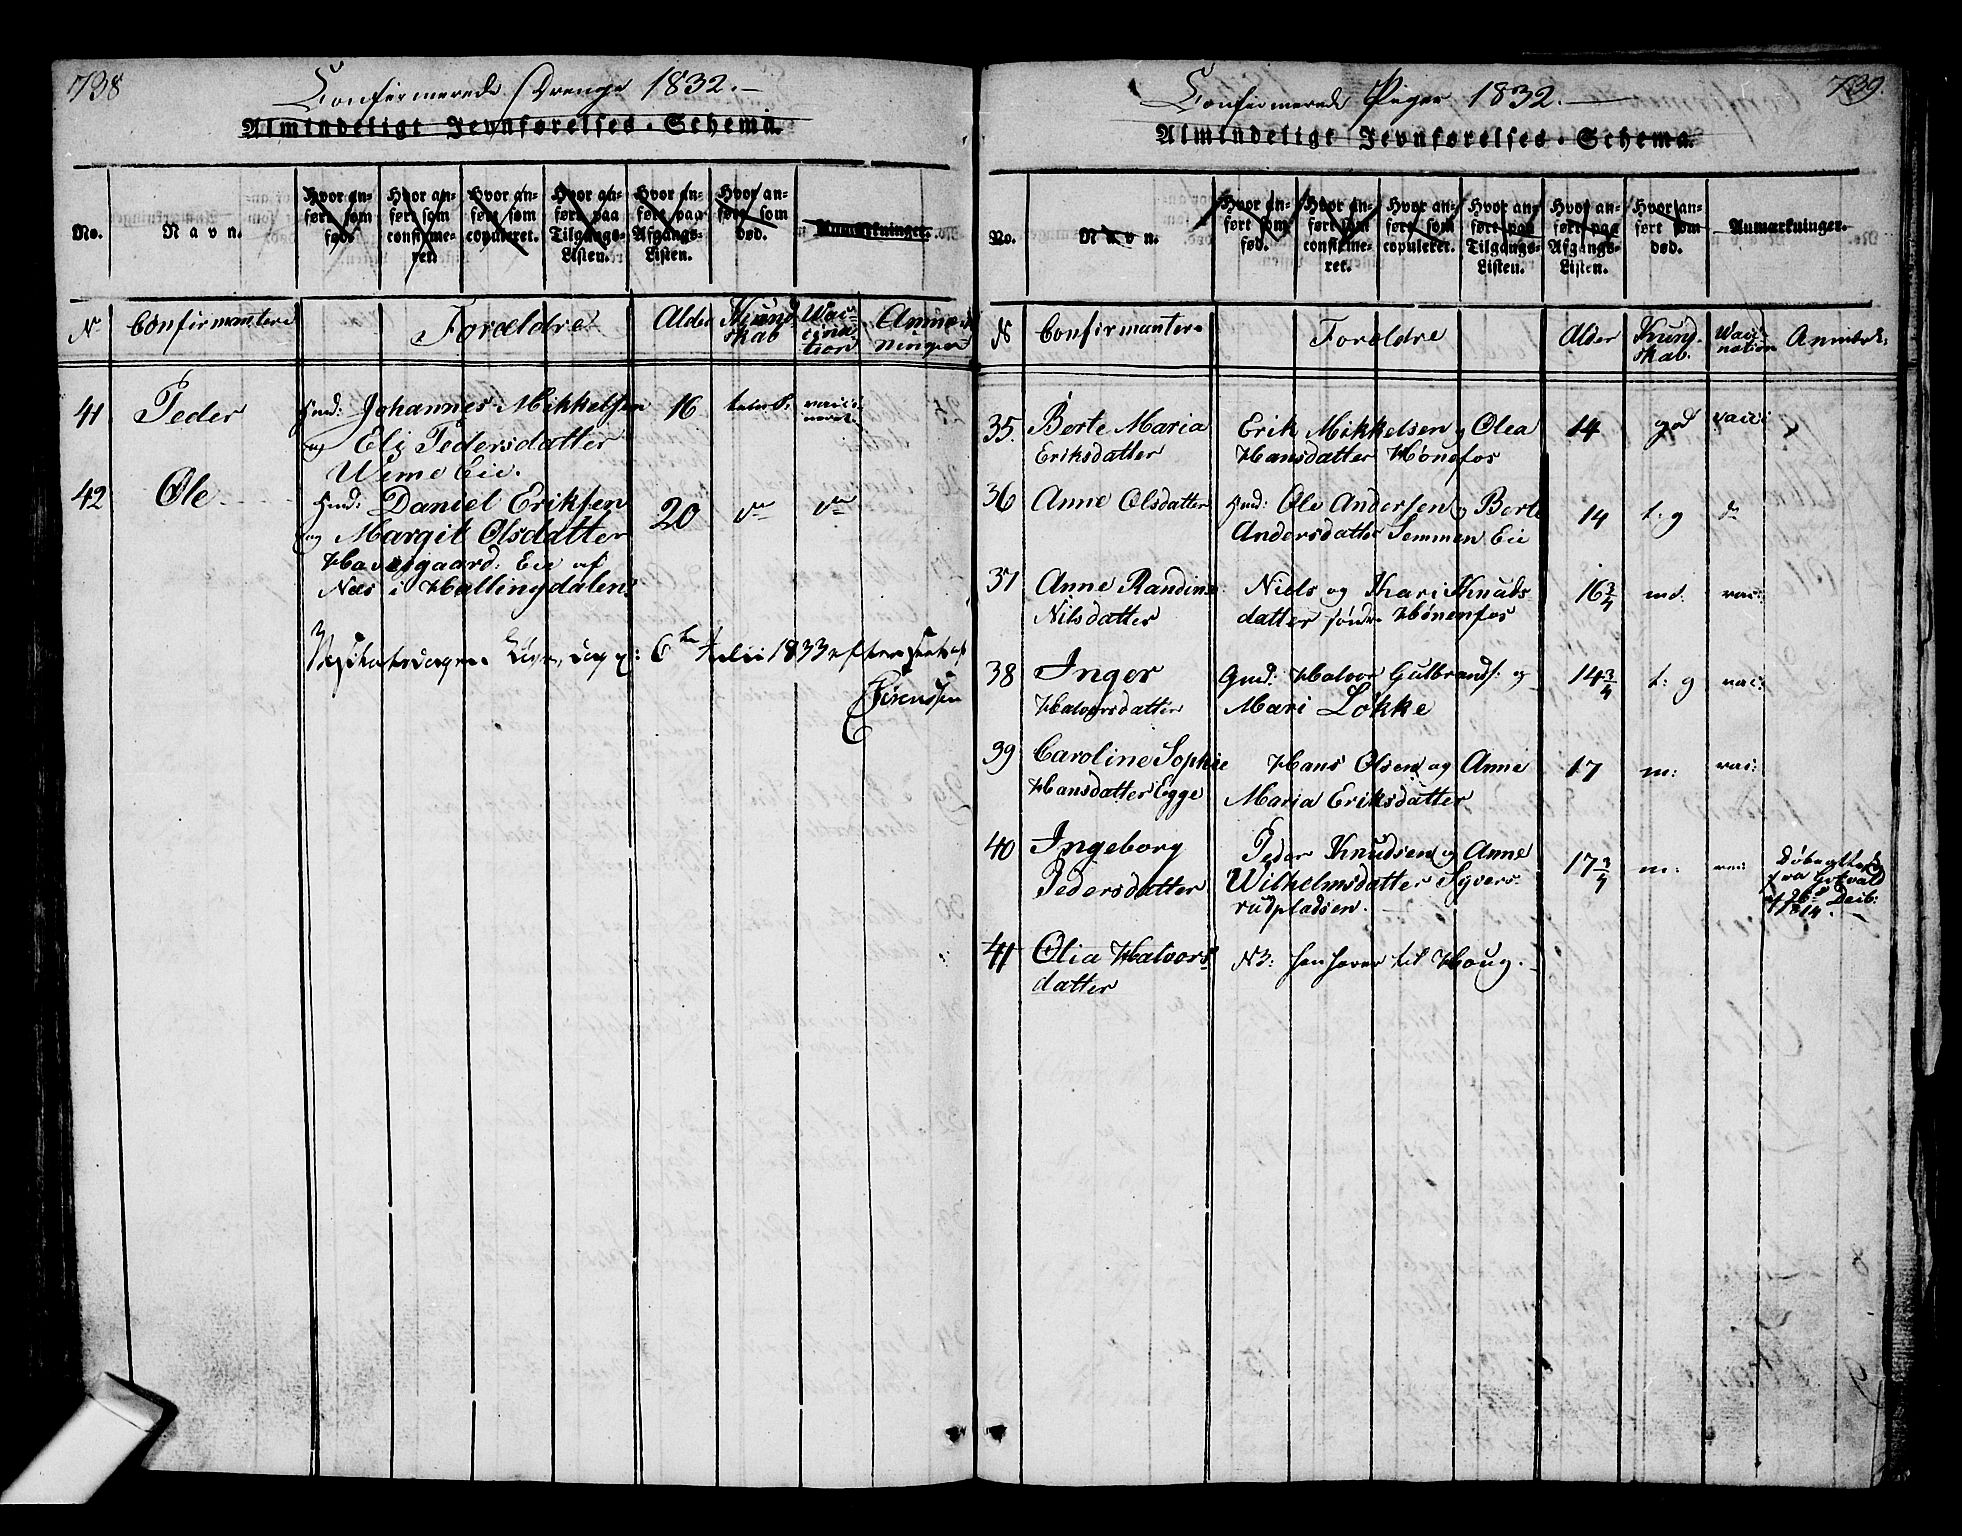 738
Confirmerede Drenge 1832.
Almindeligt Jevnførelses-Schema.
No. Navn. Hvor anført som født Hvor anført som confirmeret. Hvor anført som copuleret. Hvor anført paa Tilgangs-Listen. Hvor anført paa Afgangs-Listen. Hvor anført som død. Anmærkninger.
N Confirmantere Forældre Alder Kundskab Waccination Anmærkninger
41 Peder Huusmd: Johannes Mikkelsen 16 vacci-
og Eli Pedersdatter neret
Weme Eie.
42 Ole Huusmd: Daniel Eriksen 20 do do
og Margit Olsdatter
Havesgaard: Eie af
Næs i Hallingdalen:
6te Julii 1833 efterseet af
Sørenssen
739.
Confirmerede Piger 1832.
Almindeligt Jevnførelses-Schema.
No. Navn. Hvor anført som fød. Hvor anført som confirmeret. Hvor anført som copuleret. Hvor anført paa Tilgangs-Listen. Hvor anført paa Afgangs-Listen. Hvor anført som død. Anmærkninger.
N Confirmantere Forældre Alder Kundskab. Waccination Anmærk:
35. Berte Maria Erik Mikkelsen og Olea 14 god vacci
Eriksdatter Hansdatter Hønefos
36 Anne Olsdatter Huusmd: Ole Andersen og Berte 14 t: g do
Andersdatter Semmen Eie
37 Anne Randine Niels og Kari Knuds- 16 3/4 md: vac:
Nilsdatter datter søndr Hønenfos
38 Inger Gmd: Halvor Gulbrands: og 14 3/4 t: g vac:
Halvorsdatter Mari Løkke
39 Caroline Sophie Hans Olsen og Anne 17 m: vac:
Hansdatter Egge Maria Eriksdatter
40 Ingeborg Peder Knudsen og Anne 17 3/4 m: vac: Døbeattest
Pedersdatter Wilhelmsdatter Syvers- fra
rudpladsen. af 26 Decb: 1814.
41 Olia Halvors NB: henhører til Houg.
datter